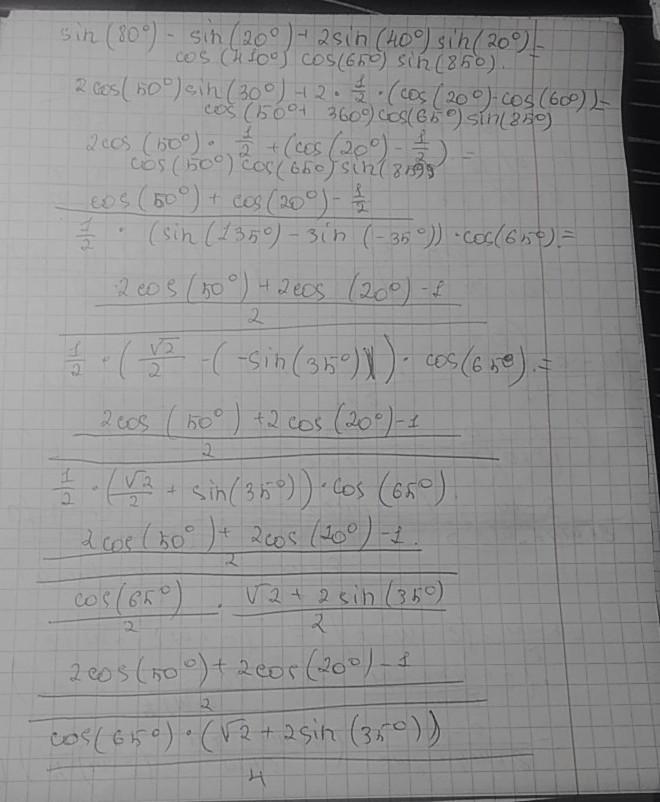 sin(80°) - sin(20°) + 2sin(40°) sin(20°) =
cos(410°) cos(65°) sin(85°).
2cos(50°)sin(30°) + 2 · 1/2 · (cos(20°) - cos(60°)) =
cos(50° + 360°) cos(65°) sin(85°)
2cos(50°) · 1/2 + (cos(20°) - 1/2) =
cos(50°) cos(65°) sin(85°)
cos(50°) + cos(20°) - 1/2
1/2 · (sin(135°) - sin(-35°)) · cos(65°) =
2cos(50°) + 2cos(20°) - 1
2
1/2 · (√2/2 - (-sin(35°))) · cos(65°) =
2cos(50°) + 2cos(20°) - 1
2
1/2 · (√2/2 + sin(35°)) · cos(65°)
2cos(50°) + 2cos(20°) - 1.
2
cos(65°)/2 · √2 + 2sin(35°)/2
2cos(50°) + 2cos(20°) - 1
2
cos(65°) · (√2 + 2sin(35°))
4